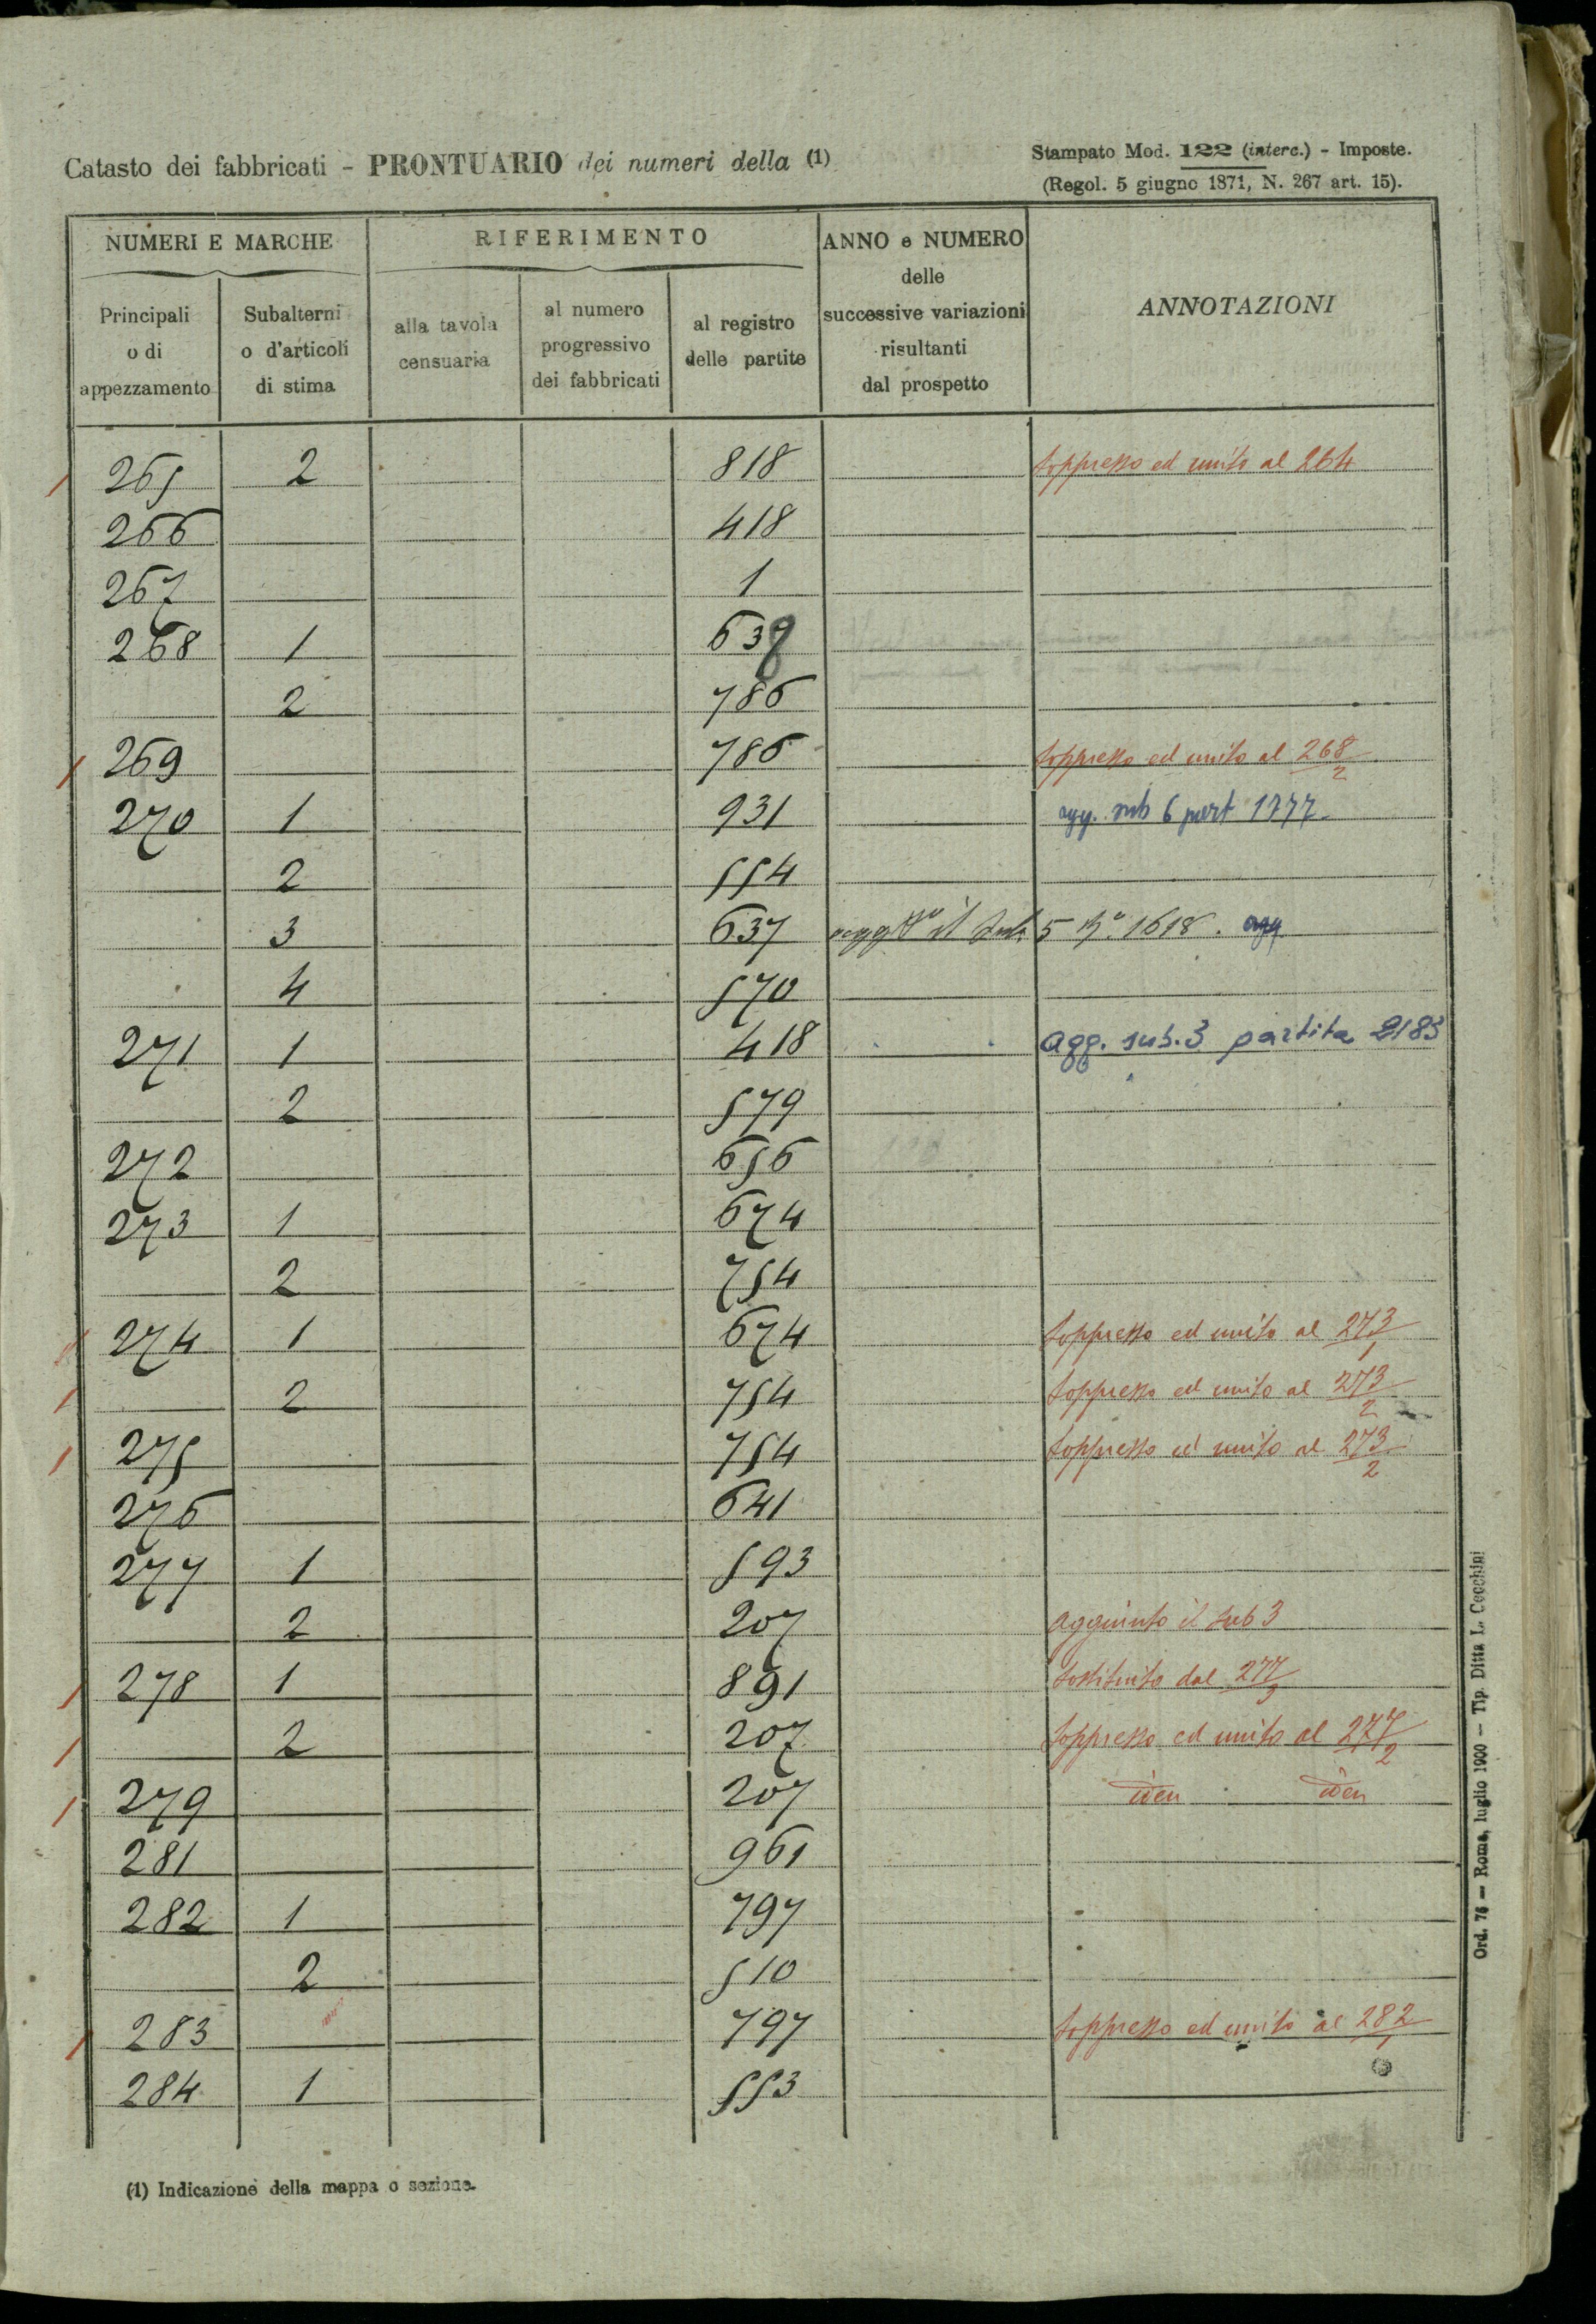 Catasto dei fabbricati - PRONTUARIO dei numeri della (1)
Stampato Mod. 122 (interc.) - Imposte.
(Regol. 5 giugno 1871, N. 267 art. 15).
NUMERI E MARCHE
RIFERIMENTO
ANNO e NUMERO
delle
successive variazioni
risultanti
dal prospetto
ANNOTAZIONI
Principali
o di
appezzamento
Subalterni
o d'articoli
di stima
alla tavola
censuaria
al numero
progressivo
dei fabbricati
al registro
delle partite
265 2 818 soppresso ed unito al 264
266 418
267 1
268 1 639
2 786
269 786 soppresso ed unito al 268/2
270 1 931 agg. sub 6 part 1777
2 554
3 637 il sub 5 1618. agg.
4 570
271 1 418 agg. sub. 3 partita 2183
2 579
272 656
273 1 674
2 754
274 1 674 soppresso ed unito al 273/1
2 754 soppresso ed unito al 273/2
275 754 soppresso ed unito al 273/2
276 641
277 1 593
2 207 aggiunto il sub 3
278 1 891 sostituito dal 277/3
2 207 soppresso ed unito al 277/2
279 207 idem idem
281 961
282 1 797
2 510
283 797 soppresso ed unito al 282/1
284 1 553
(1) Indicazione della mappa o sezione.
Ord. 76 — Roma, luglio 1900 — Tip. Ditta L. Cecchini